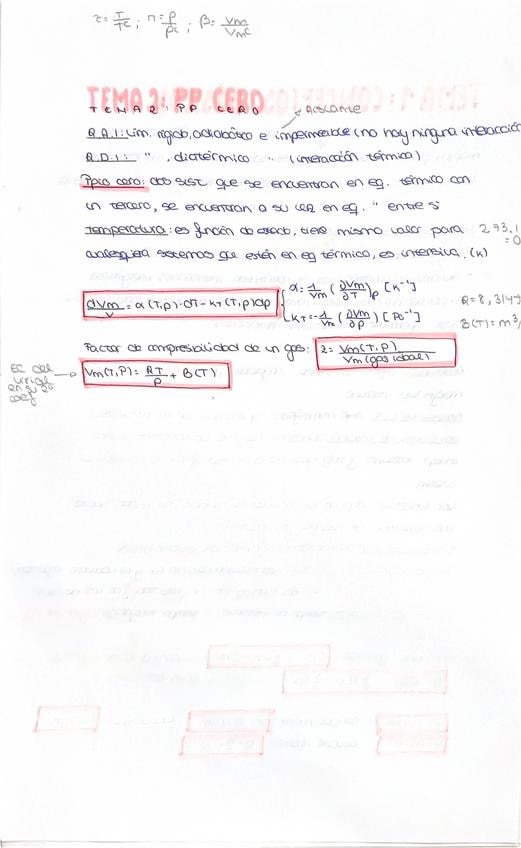 τ = T/Tc ; π = P/Pc ; β = Vm/Vmc
TEMA 2: PP CERO
TEMA 2: PP CERO → Aislante
R.A.I: Lim. rígido, adiabático e impermeable (no hay ninguna interacción
R.D.I: " . diatérmico " (interacción térmica)
Ppio cero: dos sist. que se encuentran en eq. térmico con
un tercero, se encuentran a su vez en eq. " entre si
Temperatura: es función de estado, tiene mismo valor para 273.1
cualesquiera sistemas que estén en eq térmico, es intensiva. (K) =0
dVm/V = α(T,p)·dT - κT(T,p)dp { α = 1/Vm (∂Vm/∂T)p [K⁻¹]
κT = -1/Vm (∂Vm/∂p) [Pa⁻¹] R=8,314J
B(T)=m³/
Factor de compresibilidad de un gas: z = Vm(T,P)/Vm(gas ideal)
Ec del virial en 2do coef → Vm(T,P) = RT/P + B(T)